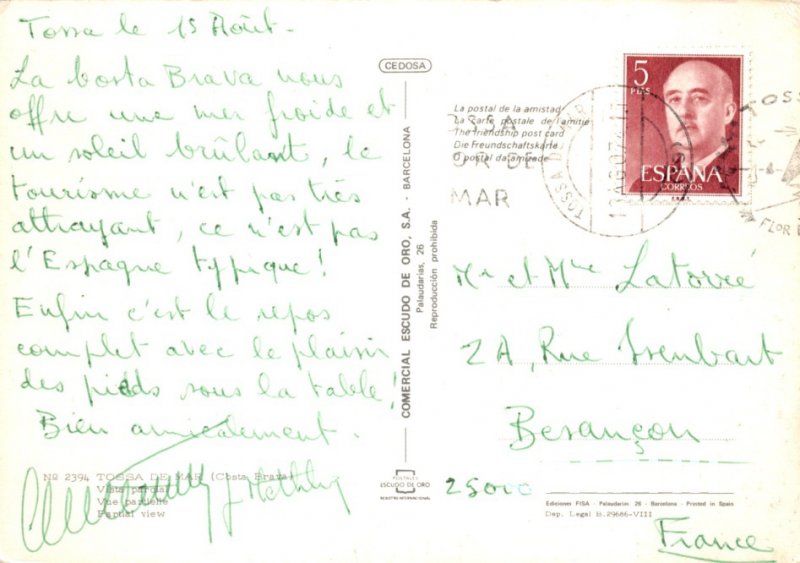 Tossa le 15 Août.
La Costa Brava nous
offre une mer froide et
un soleil brûlant, le
tourisme n'est pas très
attrayant, ce n'est pas
l'Espagne typique!
Enfin c'est le repos
complet avec le plaisir
des pieds sous la table!
Bien amicalement.
Nº 2394 TOSSA DE MAR (Costa Brava)
Vista parcial
Vue partielle
Partial view
CEDOSA
COMERCIAL ESCUDO DE ORO, S.A. - BARCELONA
Palaudarias, 26
Reproducción prohibida
POSTALES
ESCUDO DE ORO
REGISTRO INTERNACIONAL
La postal de la amistad
La carte postale de l'amitié
The friendship post card
Die Freundschaftskarte
O postal da amizade
MAR
TOSSA
FLOR
5
PTAS
ESPAÑA
CORREOS
Mr et Mme Latorré
2A, Rue Isenbart
Besançon
25000
France
Ediciones FISA - Palaudarias, 26 - Barcelona - Printed in Spain
Dep. Legal B. 29686-VIII